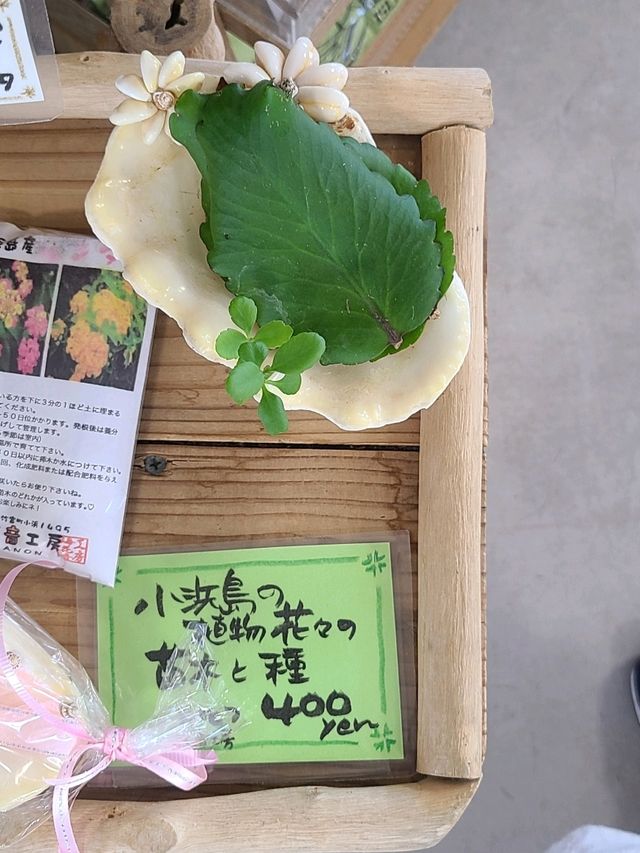 9
島産
いる方を下に3分の1ほど土に埋まる
てください。
50日位かかります。発根後は養分
げして管理します。
季節は室内)
場所で育てて下さい。
0日以内に挿木か水につけて下さい。
回、化成肥料または配合肥料を与え
咲いたらお便り下さいね。
苗木のどれかが入っています。♡
お楽しみにネ!
竹富町小浜1495
工房
ANON
小浜島の
植物花々の
と種
400
yen